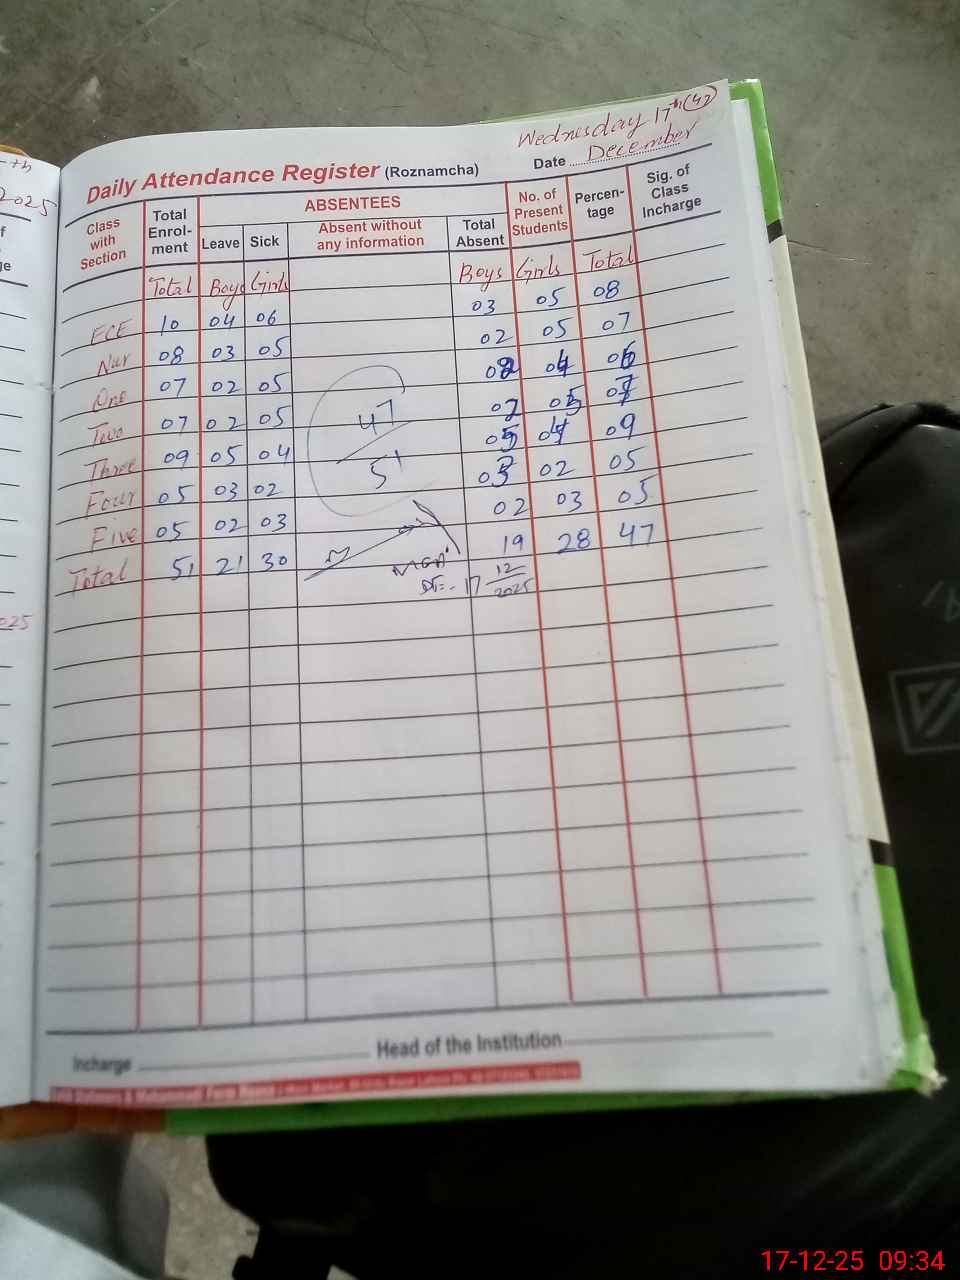 Wednesday 17th (42)
Daily Attendance Register (Roznamcha) Date December
Class with Section Total Enrol-ment ABSENTEES No. of Present Students Percen-tage Sig. of Class Incharge
Leave Sick Absent without any information Total Absent
Total Boys Girls Boys Girls Total
ECE 10 04 06 03 05 08
Nur 08 03 05 02 05 07
One 07 02 05 02 04 06
Two 07 02 05 02 05 07
Three 09 05 04 05 04 09
Four 05 03 02 03 02 05
Five 05 02 03 02 03 05
Total 51 21 30 19 28 47
47
51
17 12
2025
Incharge Head of the Institution
2025
025
17-12-25 09:34